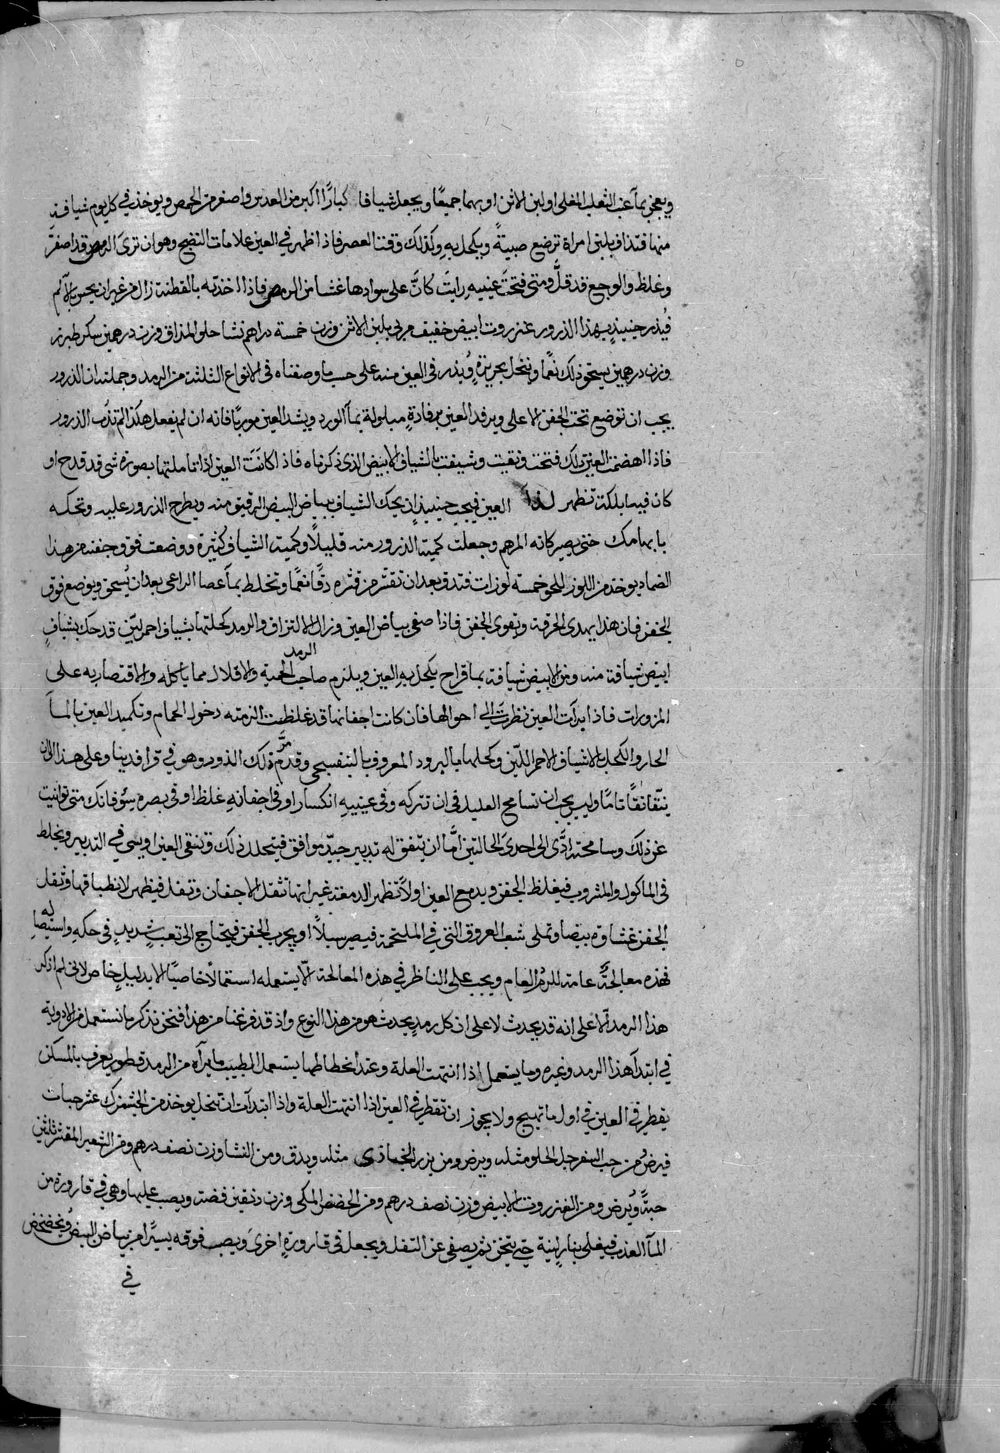 ويعجن بماء عنب الثعلب المغلي او لبن الاتن او بهما جميعًا ويجعل شيافا كبارًا اكبر من العدس واصغر من الحمص ويوخذ في كل يوم شيافة
منها فتذاف بلبن امراة ترضع صبيةً ويكحل به وكذلك وقت العصر فاذا ظهر في العين علامات النضج وهو ان ترى الرمص قد اصفرّ
وغلظ والوجع قد قلّ ومتى فتحتَ عينيه رايتَ كانّ على سوادها غشا من الرمص فاذا اخذته بالقطنة زال من غير ان يحس بالالم
فُيذر حينيذٍ بهذا الذرور عنزروت ابيض خفيف مربي بلبن الاتن وزن خمسة دراهم نشا حلو المذاق وزن درهمين سكر طبرزد
وزن درهمين يسحق ذلك نعمًا وينخل بحريرةٍ ويُذر في العين منه على حسب ما وصفناه في الانواع الثلثة من الرمد وجملته ان الذرور
يجب ان توضع تحت الجفن الاعلى ويرفد العين برفادةٍ مبلولة بماء الورد ويشد العين موربًا فانه ان لم يفعل هكذا لم تذب الذرور
فاذا انهضمت العين بذلك فتحت ونقيت وشيفت بالشياف الابيض الذي ذكرناه فاذا كانَت العين اذا تاملتها بصورة شى قد قدح او
كان فيها بلكة تظهر لذا العين فيجب حينيذٍ ان يحك الشياف ببياض البيض الرقيق منه ويطرح الذرور عليه وتحكه
بابهامك حتى يصير كانه المرهم وجعلت كمية الذرور منه قليلًا وكمية الشياف كثيرة ووضعت فوق جفنه من هذا
الضماد يوخذ من اللوز الحلو خمسة لوزات فتدق بعد ان تقشر من قشره دقًا نعمًا وتخلط بماء عصا الراعي بعد ان يُسحق ويوضع فوق
الجفن فان هذا يهدى الحرقة ويقوى الجفن فاذا صفى بياض العين وزال الالتزاق والرمد كحلتها بشياف احمر ليّن قد حك بشياف
الرمد
ابيض شيافة منه ومن الابيض شيافة بما قراح يكحل به العين ويلزم صاحب الحمية والاقلال مما ياكله والاقتصار به على
المزورات فاذا برات العين نظرتَ الى احوالها فان كانت اجفانها قد غلظت الزمته دخول الحمام وتكميد العين بالماء
الحار والكحل بالاشياف الاحمر الليّن وكحلها بالبرود المعروف بالبنفسجي وقد مرّ ذلك الذرور وهو في قرافدينا وعلى هذا الى ان
ينقا نقًا تامًا وليس يجب ان تسامح العليل في ان تتركه وفي عينيه انكسار او في اجفانه غلظ او في بصره سُو فانك متى توانيت
عن ذلك وسامحته ادّى الى احدى الحالتين امّا ان يتفق له تدبير جيّد موافق فيتحلل ذلك وتنقي العين او يسى في التدبير ويخلط
في الماكول والمشروب فيغلظ الجفن ويدمع العين اولًا تظهر الدمعة غير انها تثقل الاجفان وتفل فيظهر لانطباقها وثقل
الجفن غشاوة بيضا وتملى شعب العروق التي في الملتحمة فيصير سبلًا او يجرب الجفن فيحتاج الى تعب شديدٍ في حكه واستيصاله
فهذه معالجة عامة للرمد العام ويجب على الناظر في هذه المعالجة الّا يستعمله استعمالًا خاصيًا الا بدليل خاص لاني لم اذكر
هذا الرمد الّا على انه قد يحدث لا على ان كل رمدٍ يحدث هو من هذا النوع واذ قد فرغنا من هذا فنحن نذكر ما نستعمل من الادوية
في ابتداء هذا الرمد وغيره وما يستعمل اذا انتهت العلة وعند انحطاطها يستعمل الطبيب ما يراه من الرمد قطور يعرف بالمسكن
يقطر في العين في اول ما تهيج ولا يجوز ان تقطر في العين اذا انتهت العلة واذا ابتدات ان تنحل يوخذ من الجشمزك عشر حبات
فيرض ومن حب السفرجل الحلو مثله ويرض ومن بزر الخبازى مثله ويدق ومن النشا وزن نصف درهم ومن الشعير المقشر ثلثين
حبةً ويُرض ومن العنزروت الابيض وزن نصف درهم ومن الحضض المكي وزن دنقين فضة ويصب عليها وهي في قارورة من
الماء العذب فيغلى بنارٍ لينة حتى يثخن ثم يصفى عن الثفل ويجعل في قارورة اخرى ويصب فوقه يسيرًا من بياض البيض ويخضخض
في